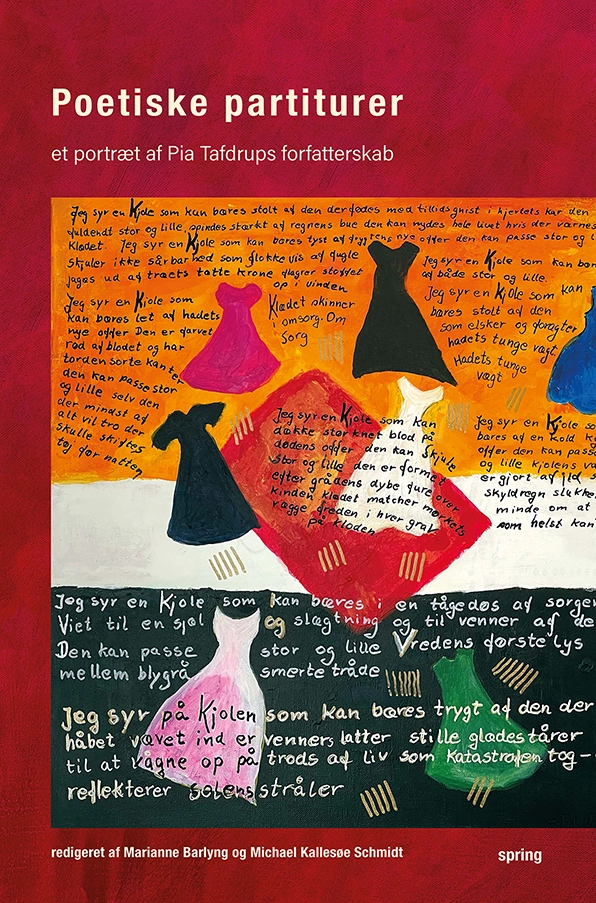 Poetiske partiturer
et portræt af Pia Tafdrups forfatterskab
Jeg syr en Kjole som kan bæres stolt af den der fødes med tillidsgnist i hjertets kar den
fuldendt stor og lille, spindes stærkt af regnens bue den kan nydes hele livet hvis der værnes
Klædet. Jeg syr en Kjole som kan bæres tyst af flygtens nye offer den kan passe stor og l
Skjuler ikke sårbarhed som flokkevis af fugle
jages ud af træets tætte krone flagrer stoffet
op i vinden
Klædet skinner
i omsorg. Om
Sorg
Jeg syr en Kjole som
kan bæres let af hadets
nye offer Den er farvet
rød af blodet og har
torden sorte kanter
den kan passe stor
og lille selv den
der mindst af
alt vil tro der
skulle skiftes
tøj før natten
Jeg syr en Kjole som kan bær
af både stor og lille.
Jeg syr en Kjole som kan
bæres stolt af den
som elsker og foragter
hadets tunge vægt
Hadets tunge
vægt
Jeg syr en Kjole som kan
dække størknet blod på
dødens offer den kan skjule
stor og lille den er formet
efter grådens dybe fure over
kinden klædet matcher mørkets
vægge freden i hver grav
på kloden
Jeg syr en Kjole so
bæres af en kold k
offer den kan passe
og lille kjolens væ
er gjort af ild s
skyldregn slukke
minde om at
som helst kan
Jeg syr en Kjole som kan bæres i en tågedøs af sorgen
Viet til en sjæl og slægtning og til venner af de
Den kan passe stor og lille Vredens første lys
mellem blygrå smerte tråde
Jeg syr på Kjolen som kan bæres trygt af den der
håbet vævet ind er venners latter stille glædestårer
til at vågne op på trods af liv som katastrofen tog -
reflekterer solens stråler
redigeret af Marianne Barlyng og Michael Kallesøe Schmidt
spring